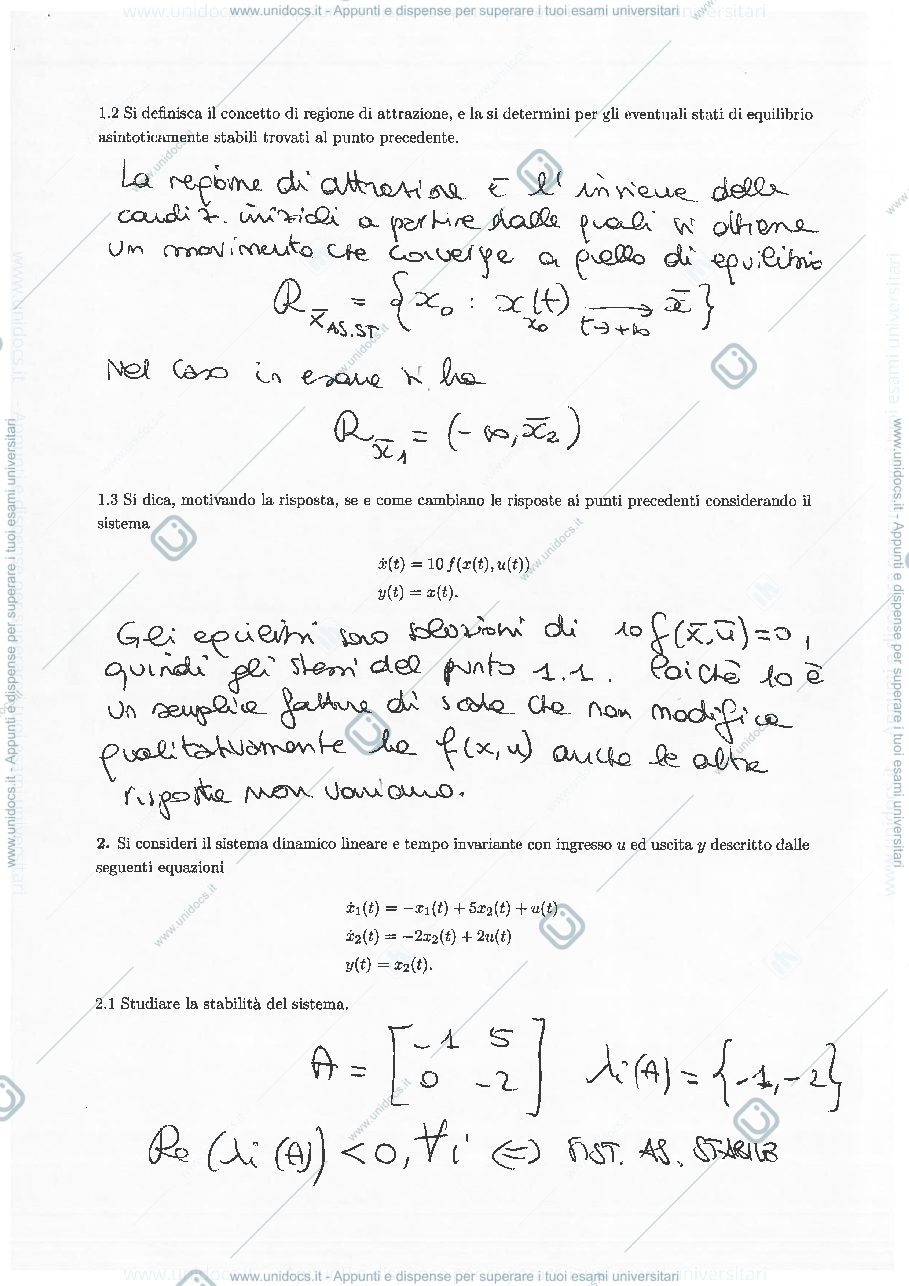 www.unidocs.it - Appunti e dispense per superare i tuoi esami universitari
1.2 Si definisca il concetto di regione di attrazione, e la si determini per gli eventuali stati di equilibrio
asintoticamente stabili trovati al punto precedente.
La regione di attrazione è l' insieme delle
condiz. iniziali a partire dalle quali si ottiene
un movimento che converge a quello di equilibrio
R_{x̄ AS.ST} = { x₀ : x(t)_{x₀} →_{t→+∞} x̄ }
Nel caso in esame si ha
R_{x̄₁} = (-∞, x̄₂)
1.3 Si dica, motivando la risposta, se e come cambiano le risposte ai punti precedenti considerando il
sistema
ẋ(t) = 10 f(x(t), u(t))
y(t) = x(t).
Gli equilibri sono soluzioni di 10 f(x̄,ū)=0,
quindi gli stessi del punto 1.1. Poiché 10 è
un semplice fattore di scala che non modifica
qualitativamente la f(x,u) anche le altre
risposte non variano.
2. Si consideri il sistema dinamico lineare e tempo invariante con ingresso u ed uscita y descritto dalle
seguenti equazioni
ẋ₁(t) = −x₁(t) + 5x₂(t) + u(t)
ẋ₂(t) = −2x₂(t) + 2u(t)
y(t) = x₂(t).
2.1 Studiare la stabilità del sistema.
A = [ -1 5
0 -2 ] λi(A) = {-1, -2}
Re (λi(A)) < 0, ∀i ⇔ SIST. AS. STABILE
www.unidocs.it - Appunti e dispense per superare i tuoi esami universitari